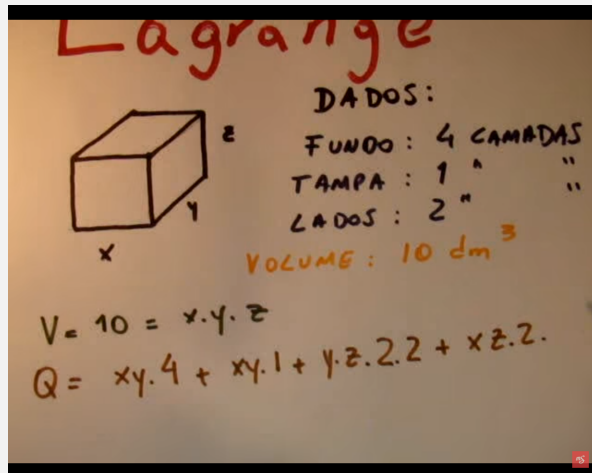 Lagrange
DADOS:
FUNDO: 4 CAMADAS
TAMPA: 1 " "
LADOS: 2 " "
VOLUME: 10 dm³
z
y
x
V = 10 = x.y.z
Q = xy.4 + xy.1 + y.z.2.2 + xz.2.